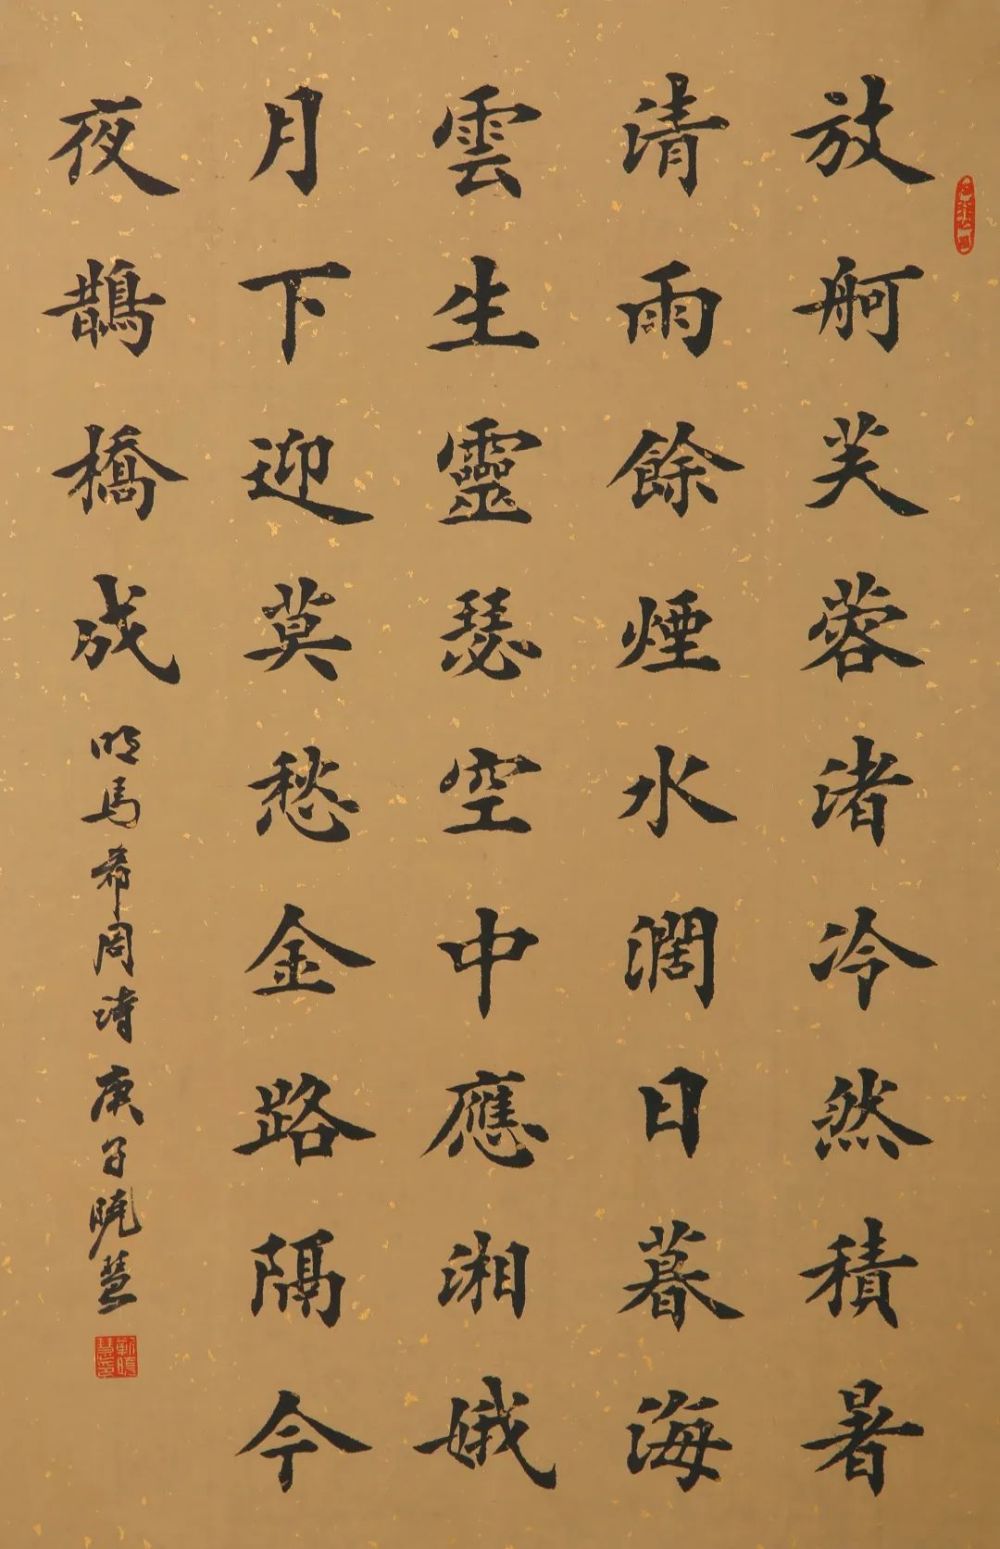 放舸芙蓉渚冷然積暑
清雨餘煙水濶日暮海
雲生靈瑟空中應湘娥
月下迎莫愁金路隔今
夜鵲橋成
明馬希周詩庚子曉慧